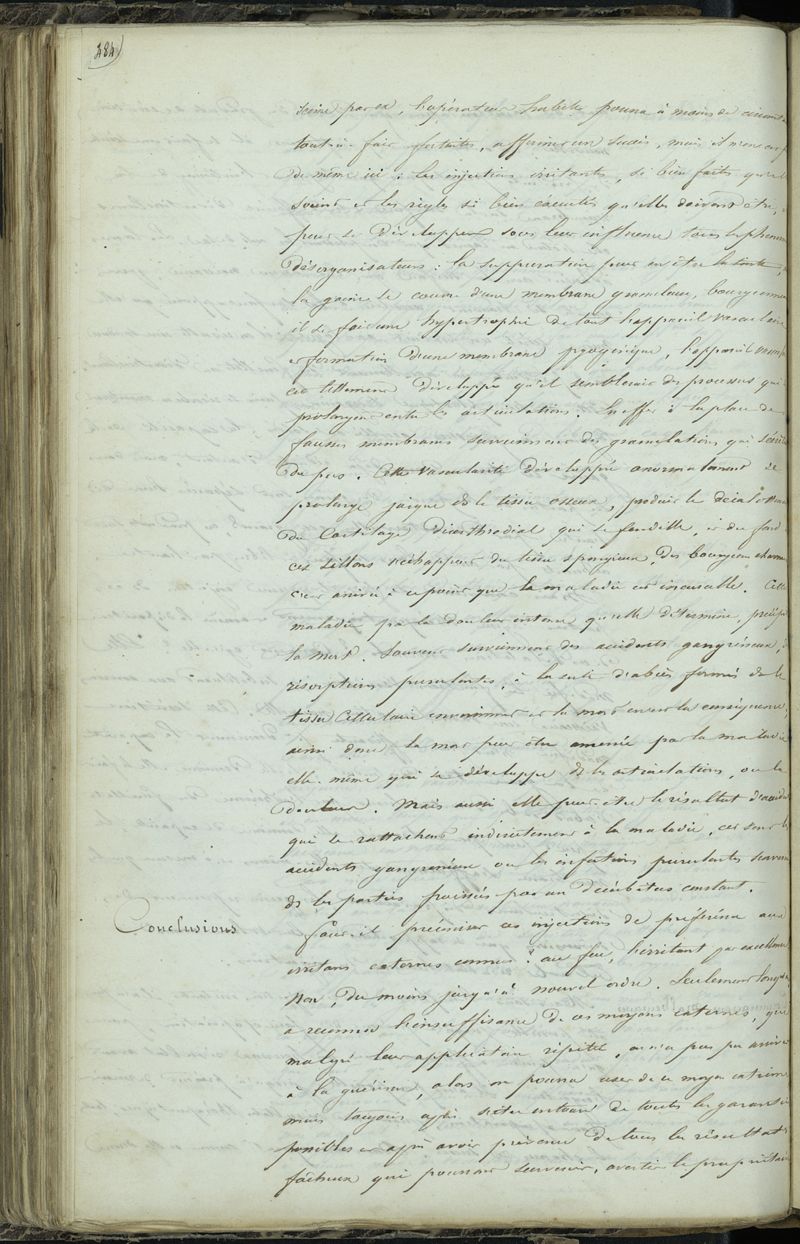 484
l'opérateur habile pourra à moins de
tout-à-fait fortuites, affirmer un succès, mais il n'en est p
de même ici : les injections irritantes, si bien faites qu'elles
soient et les règles si bien exécutées qu'elles doivent être,
peut se développer sous leur influence tous les phénom
désorganisateurs : la suppuration peut en être la suite,
la gaine se couvre d'une membrane granuleuse, bourgeonneuse
il se fait une hypertrophie de tout l'appareil vasculaire
et formation d'une membrane pyogénique, l'appareil
est tellement développé qu'il semblerait des processus qui
prolongent entre les articulations. En effet à la place de
fausses membranes surviennent des granulations qui
du pus. Cette vascularité développée anormalement se
prolonge jusque ds le tissu osseux, produit le
du Cartilage diarthrodial qui se fendille, et du fond
ces sillons s'échappent du tissu spongieux, des bourgeons charnu
C'est arrivé à ce point que la maladie est incurable. Cette
maladie par la douleur intense qu'elle détermine, précipi
la mort. Souvent surviennent des accidents gangréneux,
résorptions purulentes, à la suite d'abcès formés ds le
tissu Cellulaire environnant et la mort en est la conséquence,
ainsi donc la mort peut être amenée par la maladie
elle-même qui se développe ds les articulations, ou la
douleur. Mais aussi elle peut être le résultat d'accide
qui se rattachent indirectement à la maladie, ce sont les
accidents gangréneux ou les infections purulentes
ds les parties froissées par un Décubitus constant.
Conclusions
Faut-il préconiser ces injections de préférence aux
irritans externes connus ? au feu, l'irritant par excellence
Non, du moins jusqu'à nouvel ordre. Seulement lorsqu'on
a reconnu l'insuffisance de ces moyens externes, que
malgré leur application répétée, on n'a pas pu arriver
à la guérison, alors on pourra user de ce moyen extrême
mais toujours après s'être entouré de toutes les garanties
possibles et après avoir prévenu de tous les résultats
fâcheux qui pourront survenir, avertir le propriétaire